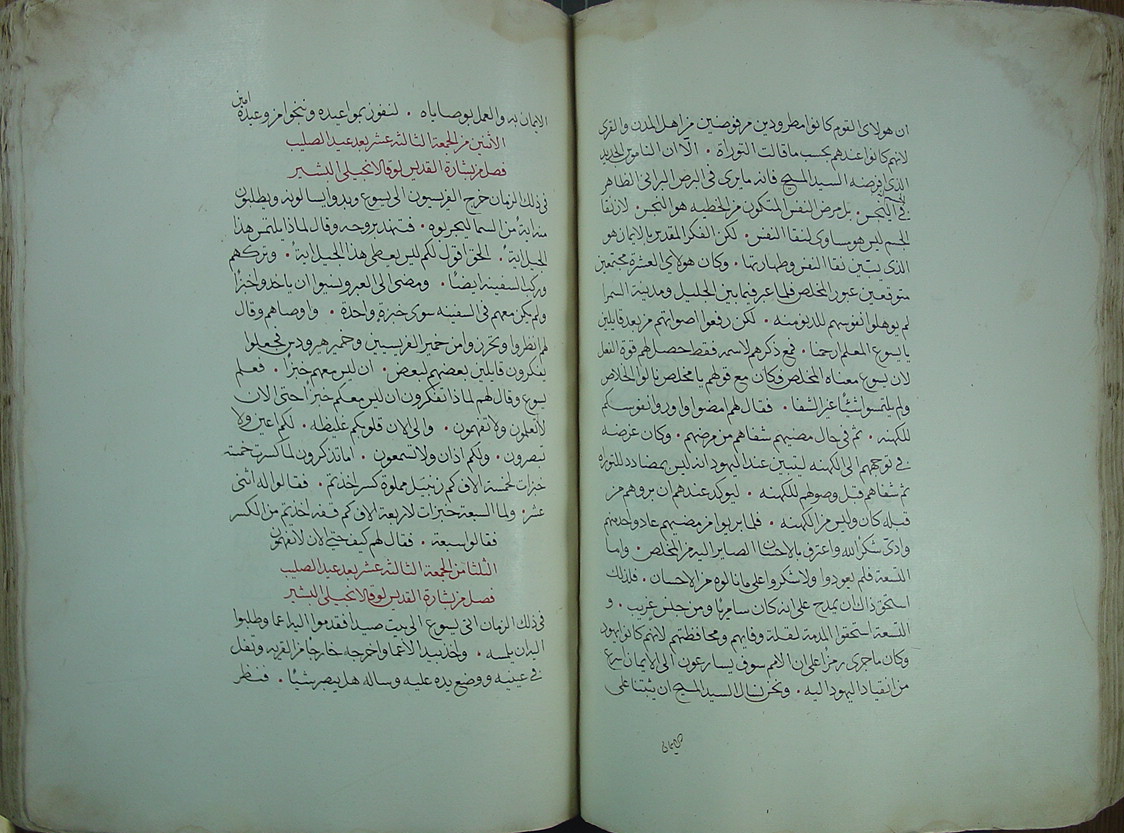 ان هولاي القوم كانوا مطرودين مرفوضين من اهل المدن والقرى
لانهم كانوا عندهم بحسب ما قالت التوراة . الا ان الناموس الجديد
الذي افرضه السيد المسيح فانه ما يرى في البرص البراني الظاهر
في الجسم انه النجس . بل مرض النفس المتكون من الخطيه هو النجس . لان نقا
الجسم ليس هو مساوى لنقا النفس . لكن الفكر المقدس بالايمان هو
الذي يبين نقا النفس وطهارتها . وكان هولاي العشرة مجتمعين
متوقعين عبور المخلص فلما عبر فيما بين الجليل ومدينة السمرا
لم يوهلوا نفوسهم للدنو منه . لكن رفعوا اصواتهم من بعد قايلين
يا يسوع المعلم ارحمنا . فمع ذكرهم لاسمه فقط حصل لهم قوة الفعل
لان يسوع معناه المخلص فكان مع قولهم يا مخلص نالوا الخلاص
ولم يلتمسوا شئاً غير الشفا . فقال لهم امضوا واوروا نفوسكم
للكهنه . ثم في حال مضيهم شفاهم من مرضهم . وكان غرضه
في توجههم الى الكهنه ليتبين عند اليهود انه ليس بمضادد للتوراه
ثم شفاهم قبل وصولهم للكهنه . ليوكد عندهم ان بروهم من
قبله كان وليس من الكهنه . فلما بريوا من مضيهم عاد واحد منهم
وادى شكراً لله واعترف بالاحسان الصاير اليه من المخلص . واما
التسعة فلم يعودوا ولا شكروا على ما نالوه من الاحسان . فلذلك
استحق ذاك ان يمدح على انه كان سامرياً ومن جنس غريب . و
التسعة استحقوا المذمة لقلة وفايهم ومحافظتهم لانهم كانوا يهود
وكان ما جرى رمزاً على ان الامم سوف يسارعون الى الايمان اسرع
من انقياد اليهود اليه . ونحن نسال السيد المسيح ان يثبتنا على
الايمان به والعمل بوصاياه . لنفوز بمواعيده وننجوا من وعيده امين
الاثنين من الجمعة الثالثه عشر بعد عيد الصليب
فصل من بشارة القديس لوقا الانجيلي البشير
في ذلك الزمان خرج الفريسيون الى يسوع وبدوا يسالونه ويطلبون
منه ايةً من السما ليجربوه . فتنهد بروحه وقال لماذا يلتمس هذا
الجيل ايةً . الحق اقول لكم ليس يعطى هذا الجيل اية . وتركهم
وركب السفينه ايضاً . ومضى الى العبر ونسيوا ان ياخدوا خبزاً
ولم يكن معهم في السفينه سوى خبزةٍ واحدة . واوصاهم وقال
لهم انظروا وتحرزوا من خمير الفريسيين وخمير هيرودس فجعلوا
يفكرون قايلين بعضهم لبعض . ان ليس معهم خبزاً . فعلم
يسوع وقال لهم لماذا تفكرون ان ليس معكم خبزاً احتى الان
لا تعلمون ولا تفهمون . والى الان قلوبكم غليظه . لكم اعين ولا
تبصرون . ولكم اذان ولا تسمعون . اما تذكرون لما كسرت خمسة
خبزات لخمسة الاف كم زنبيل مملوة كسر اخذتم . فقالوا له اثنى
عشر . ولما السبعة خبزات لاربعة الاف كم قفه اخذتم من الكسر
فقالوا سبعة . فقال لهم كيف حتى الان لا تفهمون
الثلثا من الجمعة الثالثه عشر بعد عيد الصليب
فصل من بشارة القديس لوقا الانجيلي البشير
في ذلك الزمان اتى يسوع الى بيت صيدا فقدموا اليه اعما وطلبوا
اليه ان يلمسه . واخذ بيد الاعما واخرجه خارجاً من القريه وتفل
في عينيه ووضع يده عليه وساله هل يبصر شيئاً . فنظر